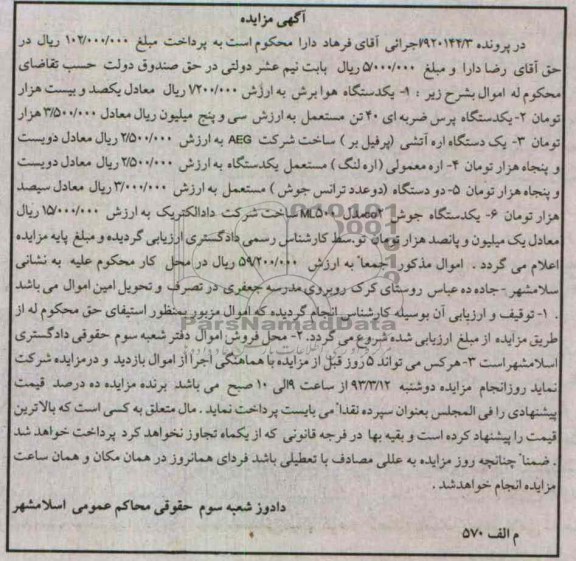 آگهی مزایده
در پرونده ۹۲۰۱۴۴/۳/اجرائی آقای فرهاد دارا محکوم است به پرداخت مبلغ ۱۰۲/۰۰۰/۰۰۰ ریال در
حق آقای رضا دارا و مبلغ ۵/۰۰۰/۰۰۰ ریال بابت نیم عشر دولتی در حق صندوق دولت حسب تقاضای
محکوم له اموال بشرح زیر : ۱- یکدستگاه هوا برش به ارزش ۷۲۰۰/۰۰۰ ریال معادل یکصد و بیست هزار
تومان ۲- یکدستگاه پرس ضربه ای ۴۰ تن مستعمل به ارزش سی و پنج میلیون ریال معادل ۳/۵۰۰/۰۰۰ هزار
تومان ۳- یک دستگاه اره آتشی (پرفیل بر ) ساخت شرکت AEG به ارزش ۲/۵۰۰/۰۰۰ ریال معادل دویست
و پنجاه هزار تومان ۴- اره معمولی (اره لنگ ) مستعمل یکدستگاه به ارزش ۲/۵۰۰/۰۰۰ ریال معادل دویست
و پنجاه هزار تومان ۵- دو دستگاه (دوعدد ترانس جوش ) مستعمل به ارزش ۳/۰۰۰/۰۰۰ ریال معادل سیصد
هزار تومان ۶- یکدستگاه جوش co۲ مدل ML۵۰۰ ساخت شرکت دادالکتریک به ارزش ۱۵/۰۰۰/۰۰۰ ریال
معادل یک میلیون و پانصد هزار تومان تو.سط کارشناس رسمی دادگستری ارزیابی گردیده و مبلغ پایه مزایده
اعلام می گردد . اموال مذکور جمعاً به ارزش ۵۹/۲۰۰/۰۰۰ ریال در محل کار محکوم علیه به نشانی
سلامشهر - جاده ده عباس روستای کرک روبروی مدرسه جعفری در تصرف و تحویل امین اموال می باشد
. ۱- توقیف و ارزیابی آن بوسیله کارشناس انجام گردیده که اموال مزبور بمنظور استیفای حق محکوم له از
طریق مزایده از مبلغ ارزیابی شده شروع می گردد. ۲- محل فروش اموال دفتر شعبه سوم حقوقی دادگستری
اسلامشهراست ۳- هرکس می تواند ۵ روز قبل از مزایده با هماهنگی اجرا از اموال بازدید و درمزایده شرکت
نماید روزانجام مزایده دوشنبه ۹۳/۳/۱۲ از ساعت ۹الی ۱۰ صبح می باشد برنده مزایده ده درصد قیمت
پیشنهادی را فی المجلس بعنوان سپرده نقداً می بایست پرداخت نماید . مال متعلق به کسی است که بالاترین
قیمت را پیشنهاد کرده است و بقیه بها در فرجه قانونی که از یکماه تجاوز نخواهد کرد پرداخت خواهد شد
. ضمناً چنانچه روز مزایده به عللی مصادف با تعطیلی باشد فردای همانروز در همان مکان و همان ساعت
مزایده انجام خواهدشد .
دادورز شعبه سوم حقوقی محاکم عمومی اسلامشهر
م الف ۵۷۰
ParsNamadData